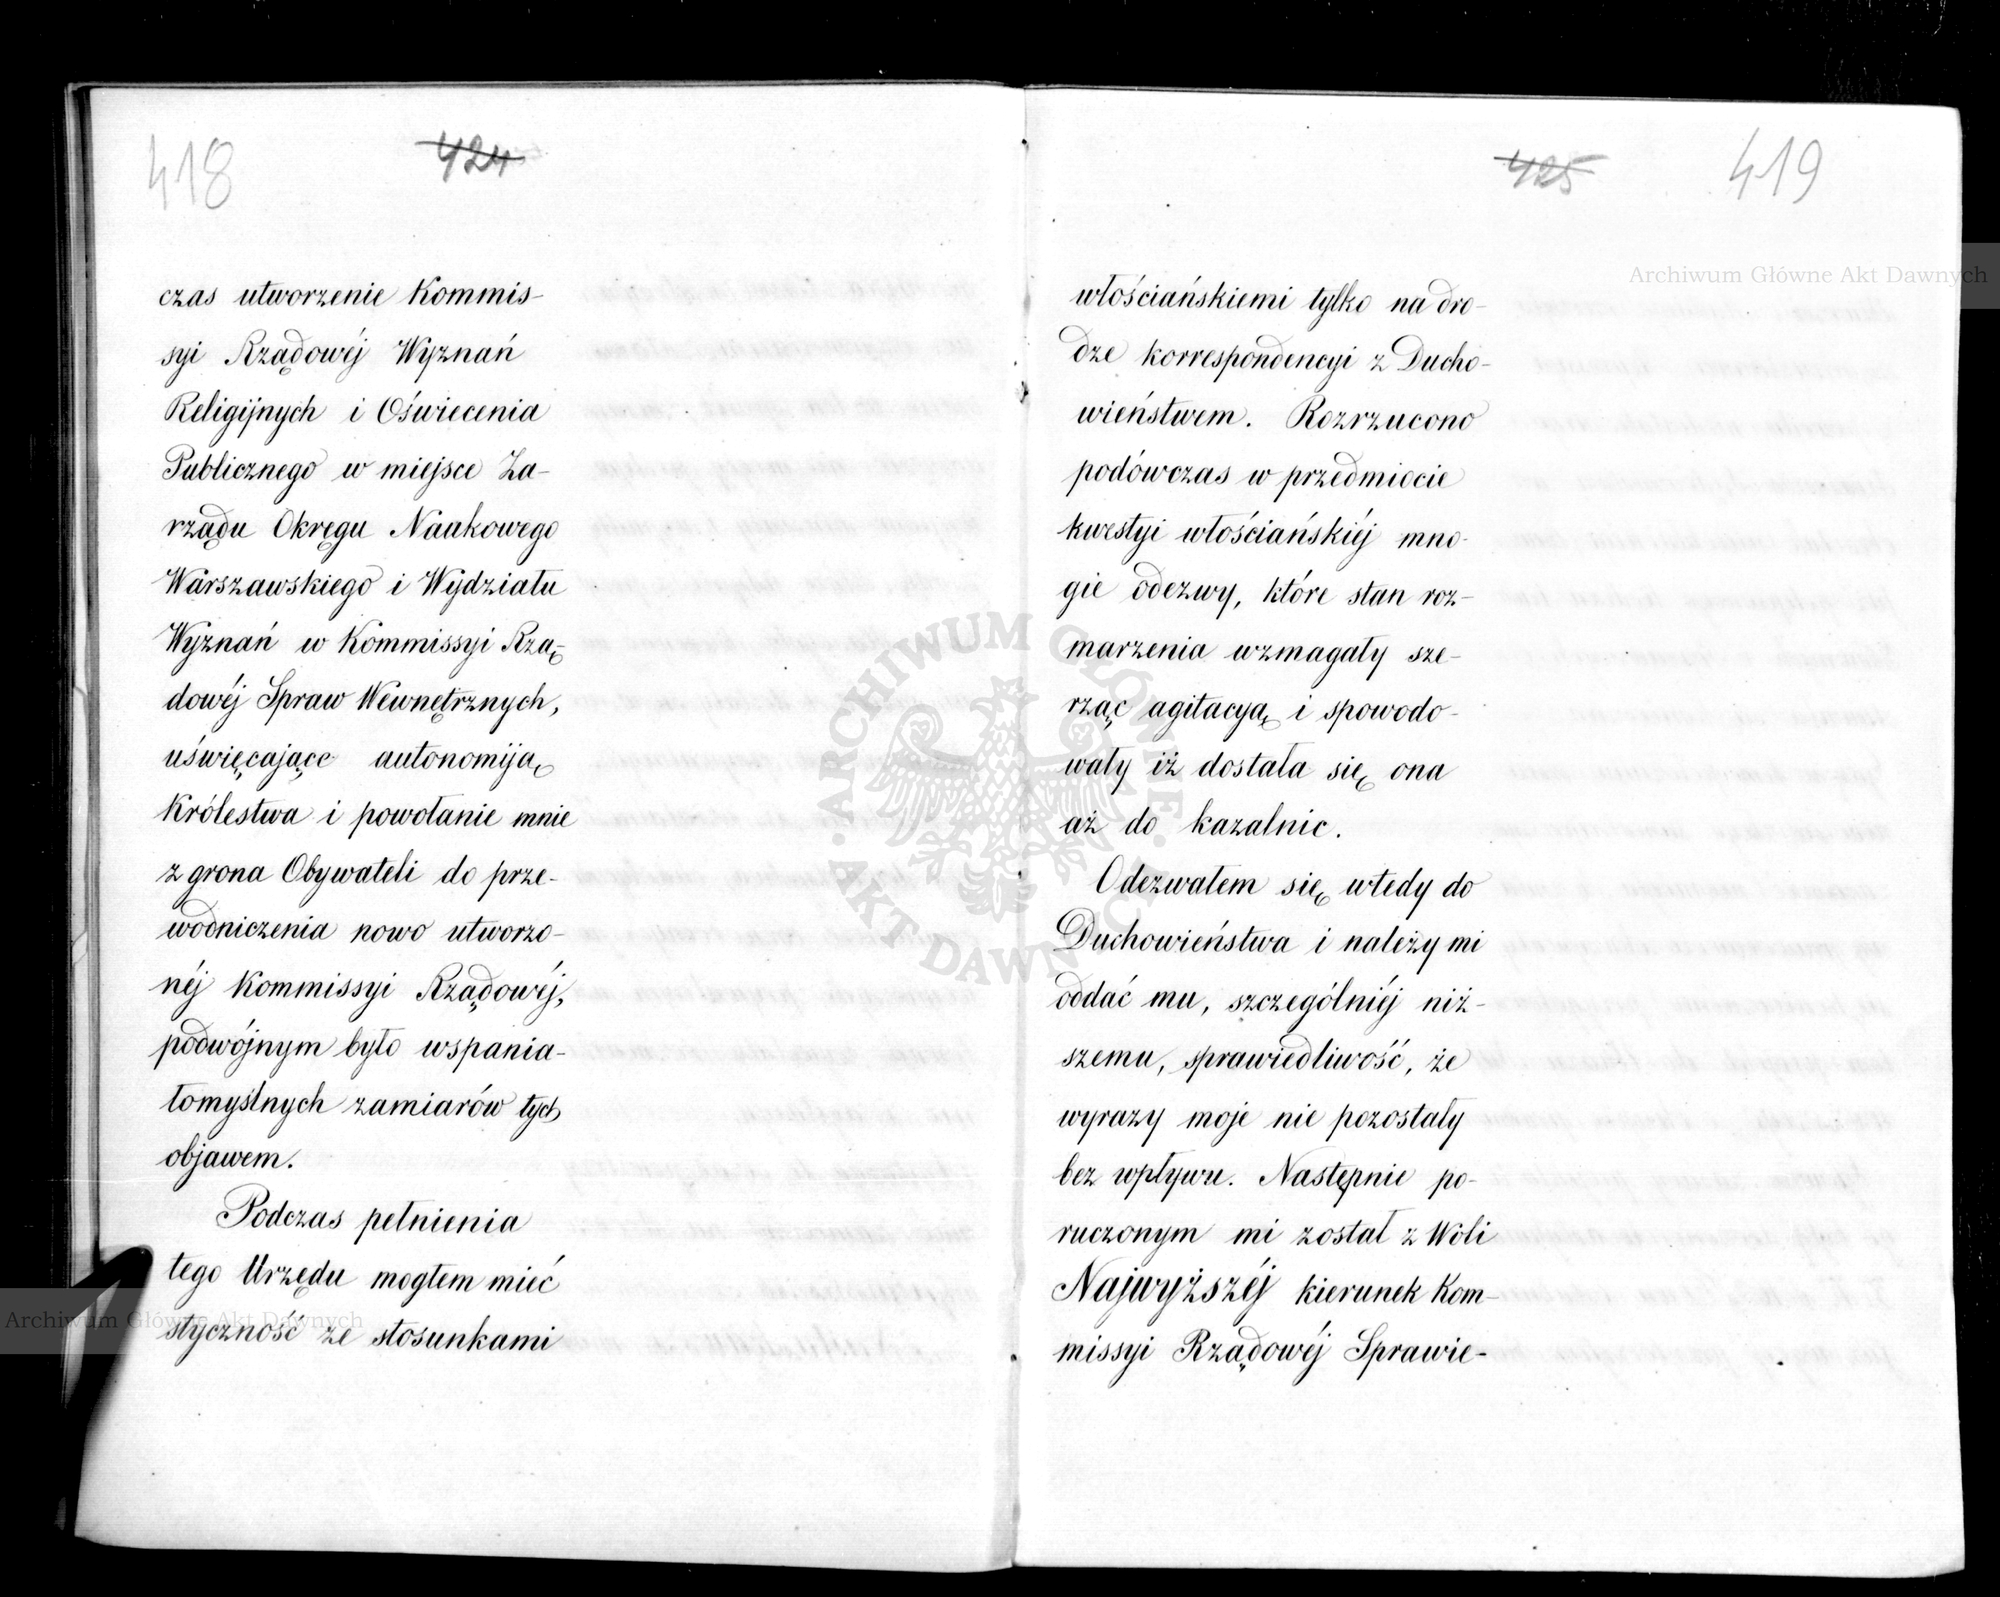 418
424
czas utworzenie Kommis-
syi Rządowéj Wyznań
Religijnych i Oświecenia
Publicznego w miejsce Za-
rządu Okręgu Naukowego
Warszawskiego i Wydziału
Wyznań w Kommissyi Rzą-
dowéj Spraw Wewnętrznych,
uświęcające autonomiją
Królestwa i powołanie mnie
z grona Obywateli do prze-
wodniczenia nowo utworzo-
néj Kommissyi Rządowéj,
podwójnym było wspania-
łomyślnych zamiarów tych
objawem.
Podczas pełnienia
tego Urzędu mogłem mieć
styczność ze stosunkami
425
419
włościańskiemi tylko na dro-
dze korrespondencyi z Ducho-
wieństwem. Rozrzucono
podówczas w przedmiocie
kwestyi włościańskiéj mno-
gie odezwy, które stan roz-
marzenia wzmagały sze-
rząc agitacyą i spowodo-
wały iż dostała się ona
aż do kazalnic.
Odezwałem się wtedy do
Duchowieństwa i należy mi
oddać mu, szczególniéj niż-
szemu, sprawiedliwość, że
wyrazy moje nie pozostały
bez wpływu. Następnie po-
ruczonym mi został z Woli
Najwyższéj kierunek Kom-
missyi Rządowéj Sprawie-
Archiwum Główne Akt Dawnych
Archiwum Główne Akt Dawnych
ARCHIWUM GŁÓWNE AKT DAWNYCH